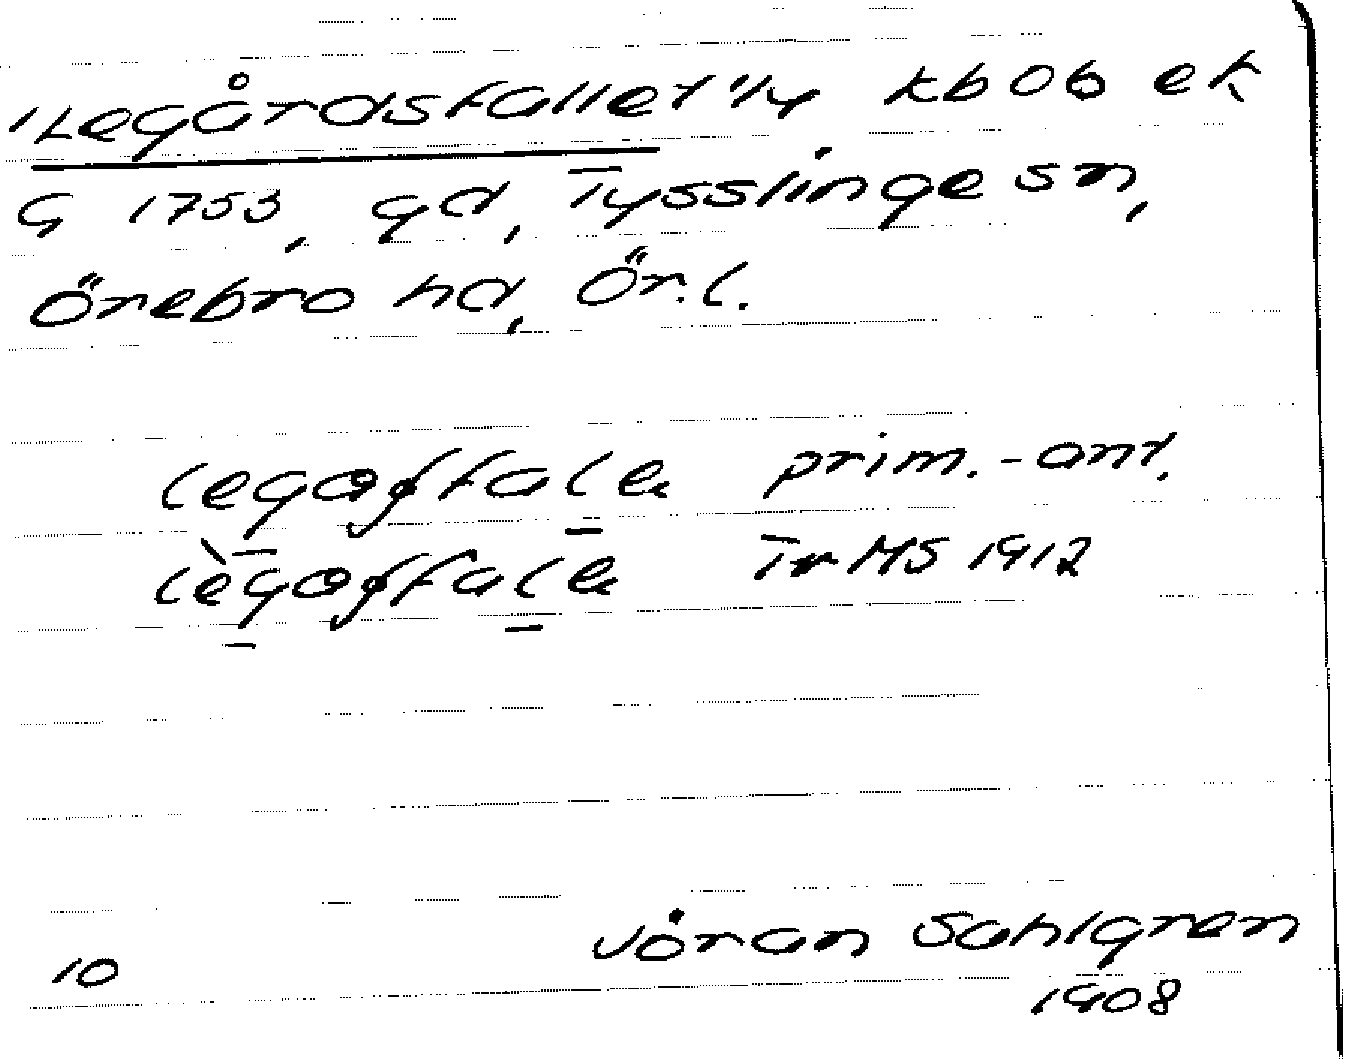 "Legårdsfallet" 1/4 kb 06 ek
G 1753, gd, Tysslinge sn,
Örebro hd, Ör. l.
prim.-ant.
Tr MS 1912
Jöran Sahlgren
10
1908